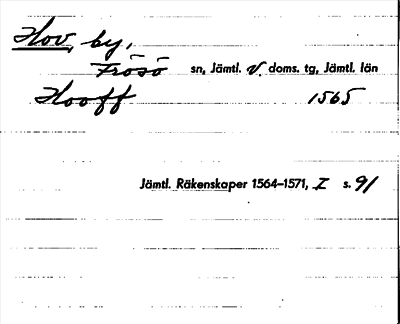 Hov, by,
Frösö sn, Jämtl. v. doms. tg, Jämtl. län
Hooff 1565
Jämtl. Räkenskaper 1564–1571, I s. 91